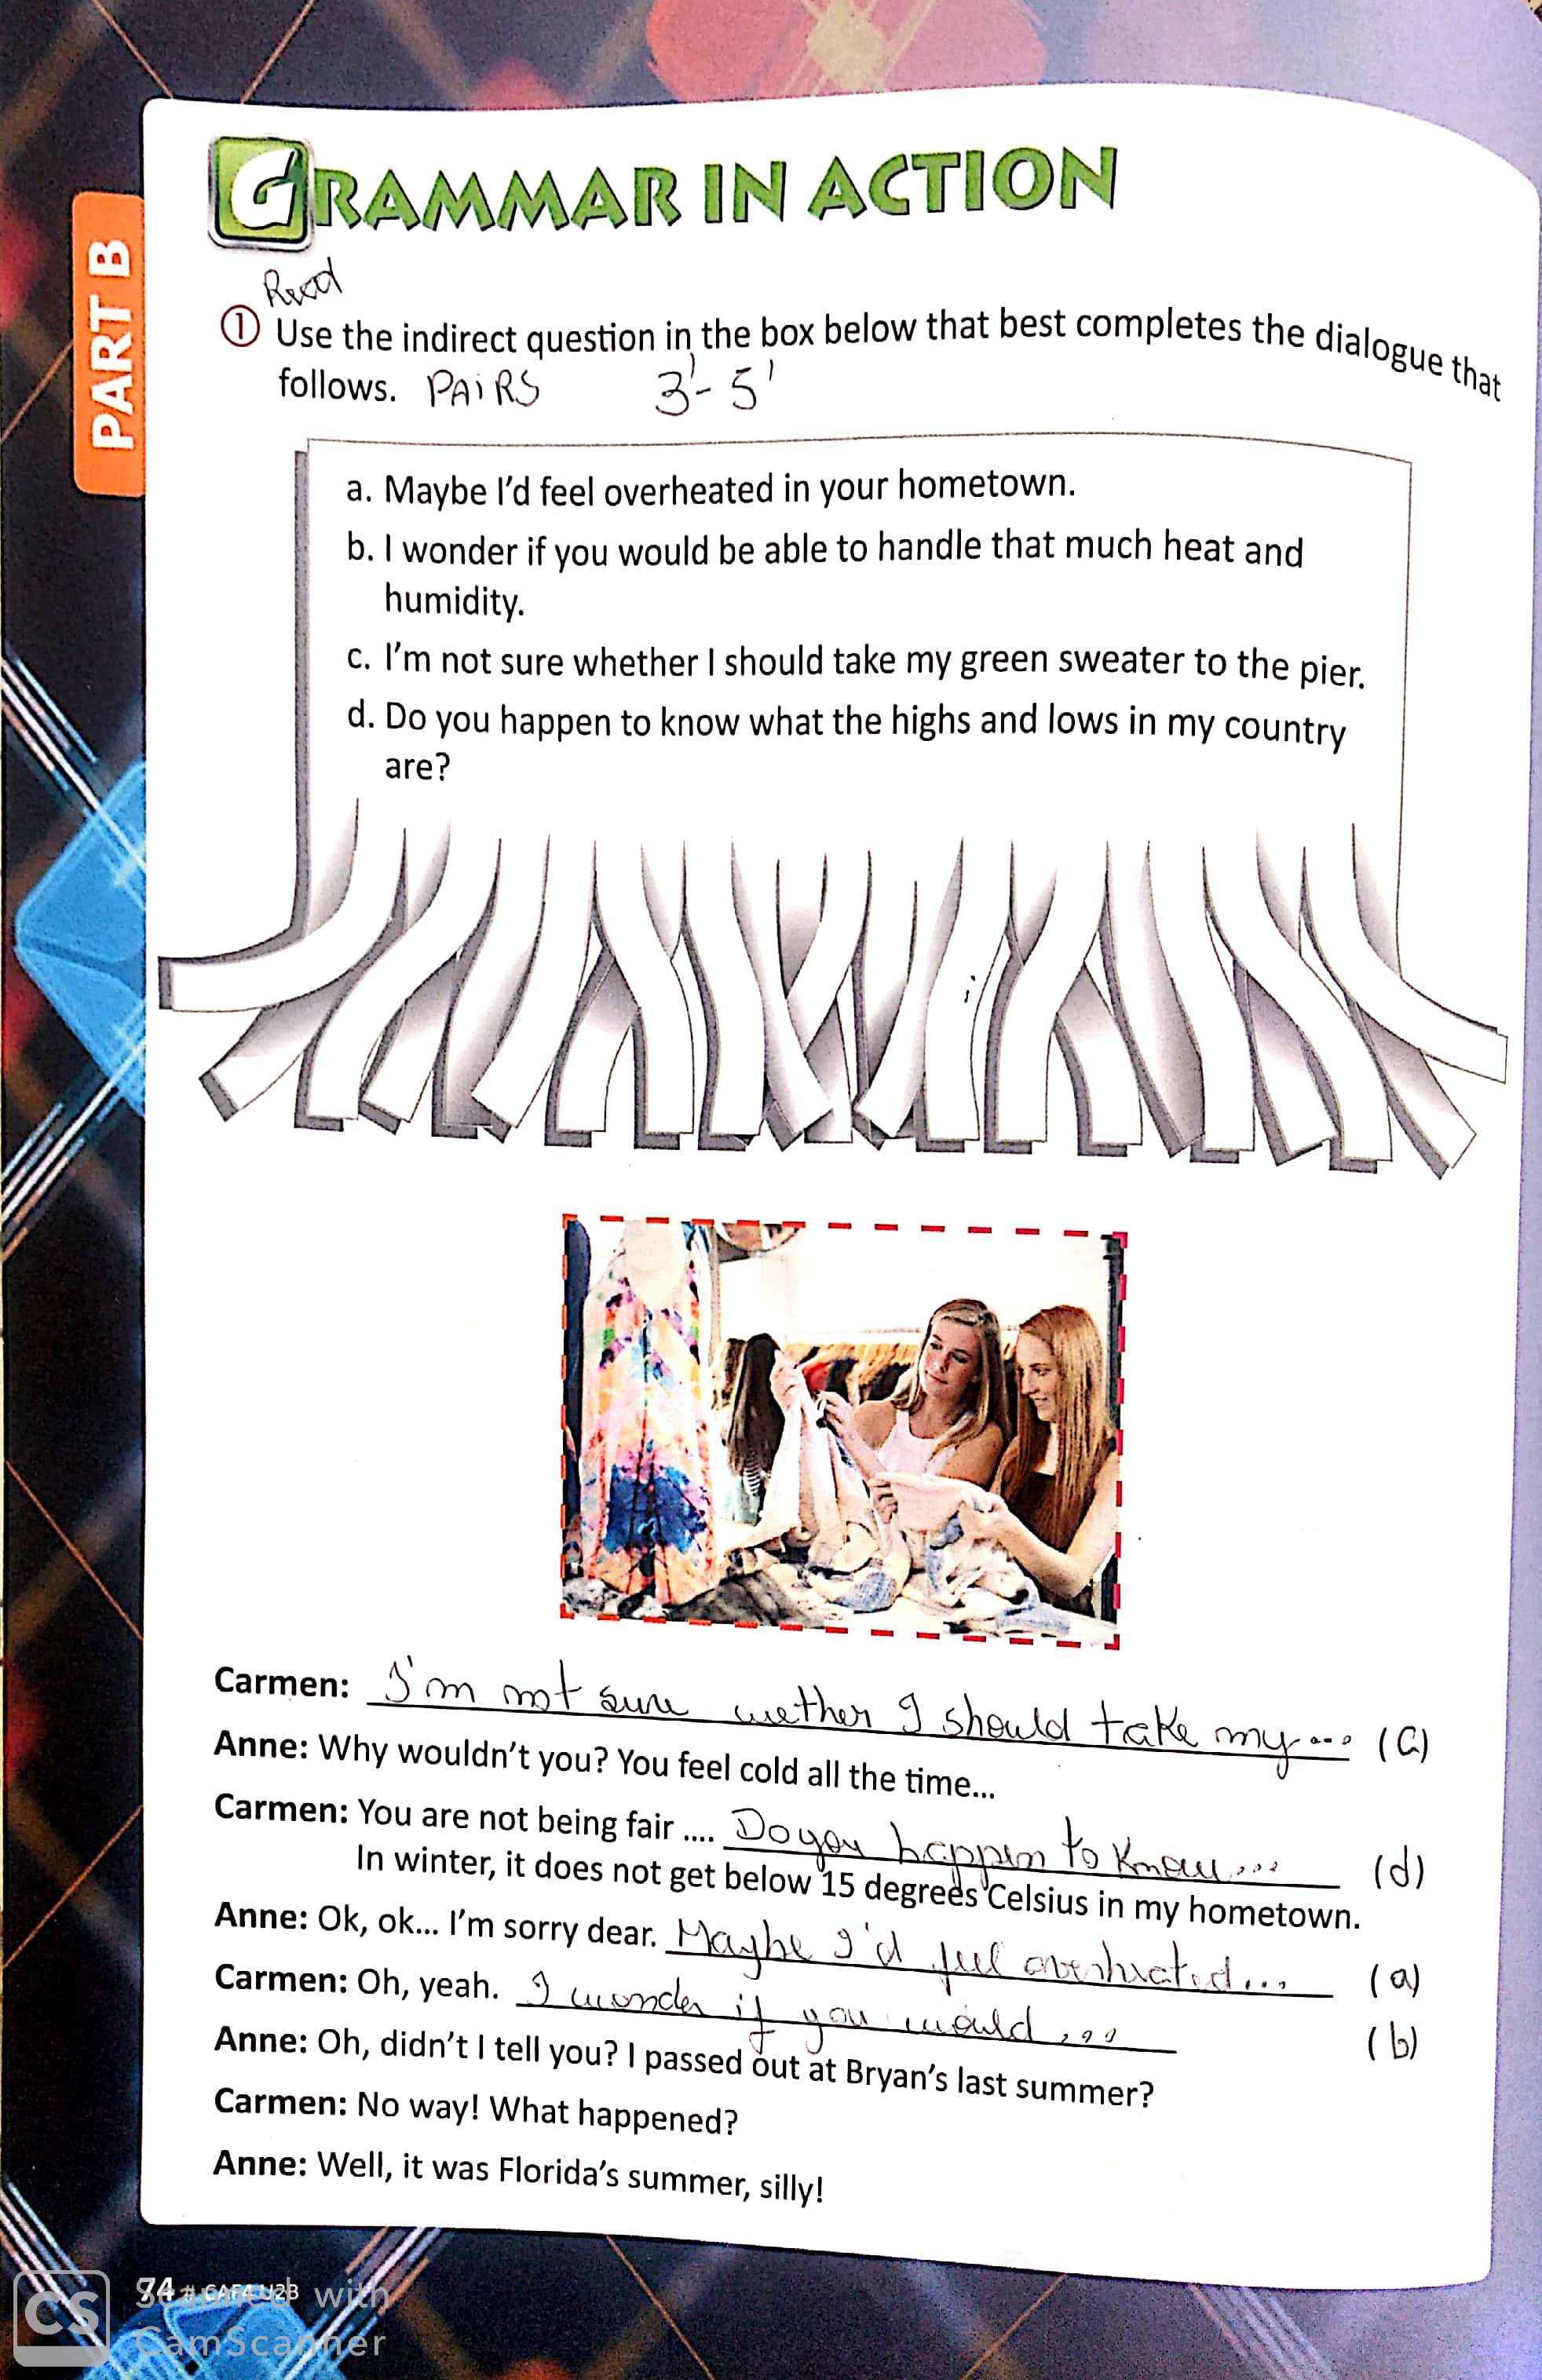 GRAMMAR IN ACTION
PART B
Read
① Use the indirect question in the box below that best completes the dialogue that
follows. PAiRS 3'- 5'
a. Maybe I'd feel overheated in your hometown.
b. I wonder if you would be able to handle that much heat and
humidity.
c. I'm not sure whether I should take my green sweater to the pier.
d. Do you happen to know what the highs and lows in my country
are?
Carmen: I'm not sure wether I should take my... (C)
Anne: Why wouldn't you? You feel cold all the time...
Carmen: You are not being fair .... Do you happen to know... (d)
In winter, it does not get below 15 degrees Celsius in my hometown.
Anne: Ok, ok... I'm sorry dear. Maybe I'd feel overheated... (a)
Carmen: Oh, yeah. I wonder if you would... (b)
Anne: Oh, didn't I tell you? I passed out at Bryan's last summer?
Carmen: No way! What happened?
Anne: Well, it was Florida's summer, silly!
74 # CAF4 U2B
CS Scanned with
CamScanner